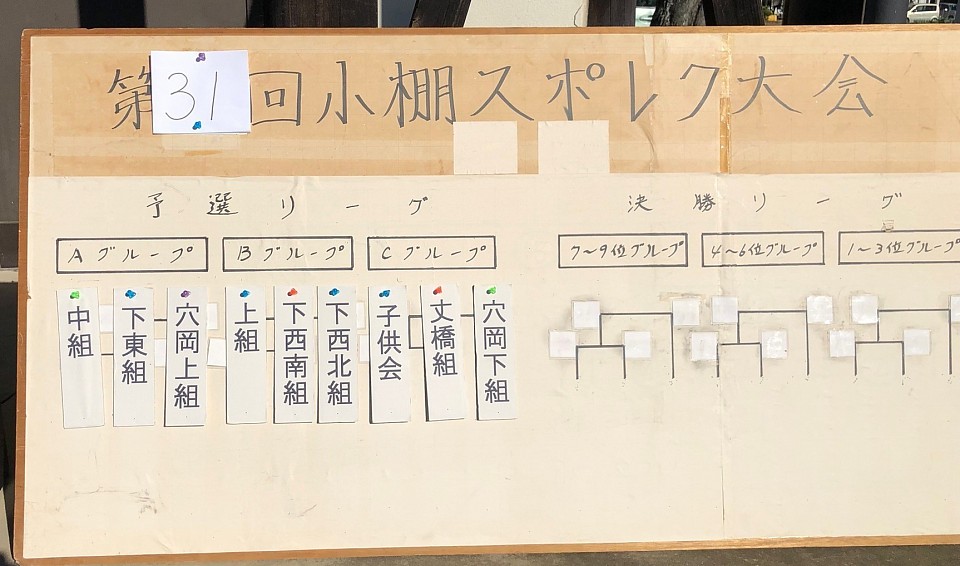 第31回小棚スポレク大会
予選リーグ
決勝リーグ
Aグループ
Bグループ
Cグループ
7〜9位グループ
4〜6位グループ
1〜3位グループ
中組
下東組
穴岡上組
上組
下西南組
下西北組
子供会
丈橋組
穴岡下組